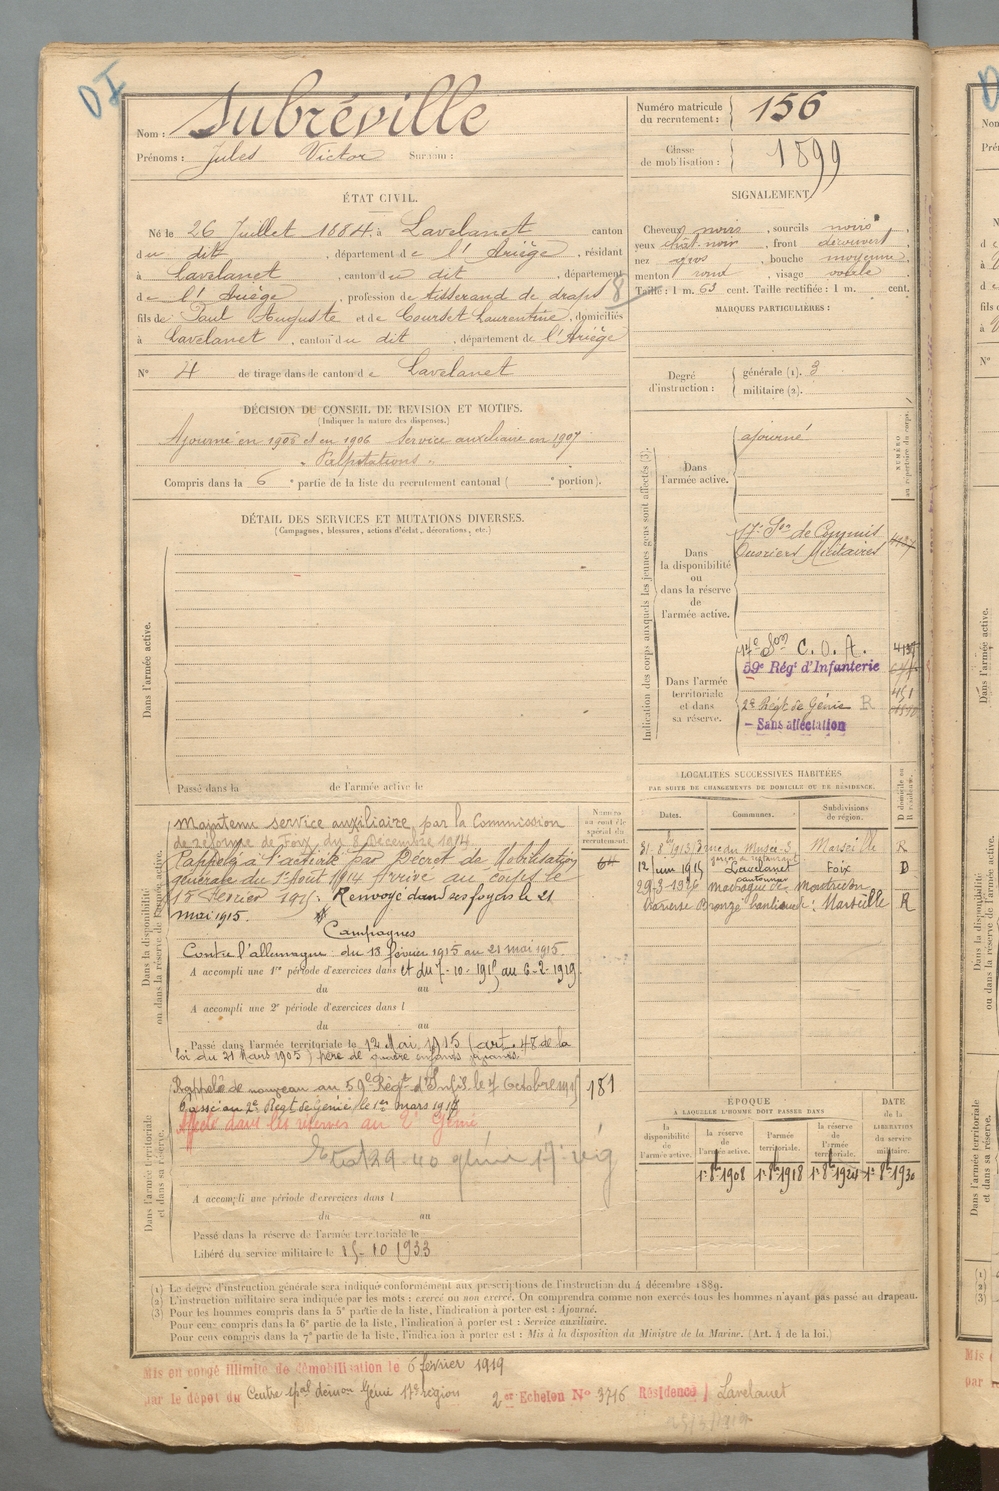 DI
Nom : Subréville
Prénoms : Jules Victor Surnom :
Numéro matricule du recrutement : 156
Classe de mobilisation : 1899
ÉTAT CIVIL.
Né le 26 Juillet 1884, à Lavelanet canton
du dit , département de l'Ariège , résidant
à Lavelanet , canton du dit , département
de l'Ariège , profession de tisserand de draps 8
fils de Paul Auguste et de Courset Laurentine , domiciliés
à Lavelanet , canton du dit , département de l'Ariège
N° 4 de tirage dans de canton de Lavelanet
SIGNALEMENT
Cheveux noirs , sourcils noirs ,
yeux chât-noir , front découvert ,
nez gros , bouche moyenne ,
menton rond , visage ovale
Taille : 1 m. 63 cent. Taille rectifiée : 1 m. cent.
MARQUES PARTICULIÈRES :
Degré d'instruction : générale (1). 3
militaire (2).
DÉCISION DU CONSEIL DE REVISION ET MOTIFS.
(Indiquer la nature des dispenses.)
Ajourné en 1905 et en 1906 Service auxiliaire en 1907
" Palpitations "
Compris dans la 6e partie de la liste du recrutement cantonal ( e portion).
DÉTAIL DES SERVICES ET MUTATIONS DIVERSES.
(Campagnes, blessures, actions d'éclat, décorations, etc.)
Dans l'armée active.
Passé dans la de l'armée active le
Indication des corps auxquels les jeunes gens sont affectés (3).
NUMÉRO au répertoire du corps.
Dans l'armée active.
ajourné
Dans la disponibilité ou dans la réserve de l'armée active.
17e Son de Commis
Ouvriers Militaires
Dans l'armée territoriale et dans sa réserve.
17e Son C. O. A.
59e Régt d'Infanterie
2e Régt de Génie R
451
- Sans affectation
Dans la disponibilité ou dans la réserve de l'armée active.
Maintenu service auxiliaire par la Commission
de réforme de Foix du 8 Décembre 1914
Rappelé à l'activité par Décret de Mobilisation
générale du 1er Août 1914 Arrivé au corps le
18 Février 1915. Renvoyé dans ses foyers le 21
mai 1915.
Campagnes
Contre l'allemagne : du 18 février 1915 au 21 mai 1915.
A accompli une 1re période d'exercices dans et du 7-10-1915 au 6-2-1919.
du au
A accompli une 2e période d'exercices dans l
du au
Passé dans l'armée territoriale le 12 Mai 1915 (art. 48 de la
loi du 21 Mars 1905) père de quatre enfants vivants.
Numéro au contrôle spécial du recrutement.
64
LOCALITÉS SUCCESSIVES HABITÉES
PAR SUITE DE CHANGEMENTS DE DOMICILE OU DE RÉSIDENCE.
Dates. Communes. Subdivisions de région. D domicile ou R résidence.
rue du Musée 3 Marseille R
12 juin 1915 Lavelanet Foix D
29-3-1926
Marseille R
Dans l'armée territoriale et dans sa réserve.
Rappelé de nouveau au 59e Régt d'Infie le 7 octobre 1915
Passé au 2e Régt de Génie, le 1er mars 1917
Affecté dans les réserves au 2e Génie
181
A accompli une période d'exercices dans l
du au
Passé dans la réserve de l'armée territoriale le
Libéré du service militaire le 15-10 1933
ÉPOQUE
A LAQUELLE L'HOMME DOIT PASSER DANS
DATE de la LIBÉRATION du service militaire.
la disponibilité de l'armée active. la réserve de l'armée active. l'armée territoriale. la réserve de l'armée territoriale.
1er 8bre 1908 1er 8bre 1918 1er 8bre 1924 1er 8bre 1930
(1) Le degré d'instruction générale sera indiqué conformément aux prescriptions de l'instruction du 4 décembre 1889.
(2) L'instruction militaire sera indiquée par les mots : exercé ou non exercé. On comprendra comme non exercés tous les hommes n'ayant pas passé au drapeau.
(3) Pour les hommes compris dans la 5e partie de la liste, l'indication à porter est : Ajourné.
Pour ceux compris dans la 6e partie de la liste, l'indication à porter est : Service auxiliaire.
Pour ceux compris dans la 7e partie de la liste, l'indication à porter est : Mis à la disposition du Ministre de la Marine. (Art. 4 de la loi.)
Mis en congé illimité de démobilisation le 6 février 1919
par le dépôt du Centre Génie 17e région 2er Echelon N° 3716 Résidence Lavelanet